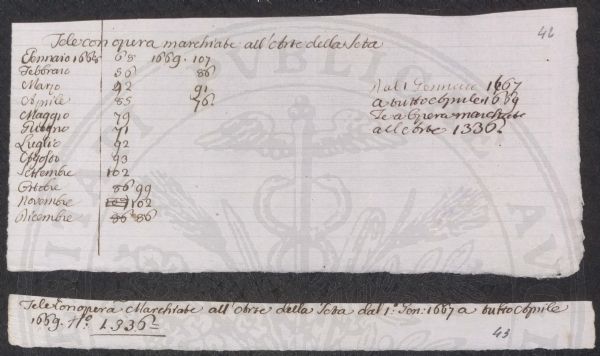 42
Tele con opera marchiate all'Arte della Seta
Gennaio 1668 68 1669. 107
Febbraio 56 86
Marzo 92 91
Aprile 85 76
Maggio 79
Giugno 71
Luglio 92
Agosto 93
Settembre 102
Ottobre 86 99
Novembre 102
Dicembre 86 86
Dal 1 Gennaio 1667
a tutto Aprile 1669
Tele Opera marchiate
all'Arte 1336
Tele con opera Marchiate all'Arte della Seta dal 1º Gen: 1667 a tutto Aprile
1669. Nº 1336
43